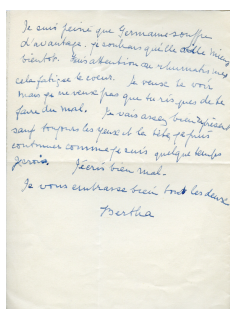 Je suis peiné que Germaine souffre
d'avantage, je souhais qu'elle aille mieux
bientôt. Fais attention de rhumatismes
cela fatigue le coeur. Je veux te voir
mais je ne veux pas que tu risques de te
faire du mal. Je vais assez bien à présent
sauf toujours les yeux et la tête, je puis
continuer comme je suis quelque temps
J'écris bien mal.
Je vous embrasse bien tous les deux
Bertha